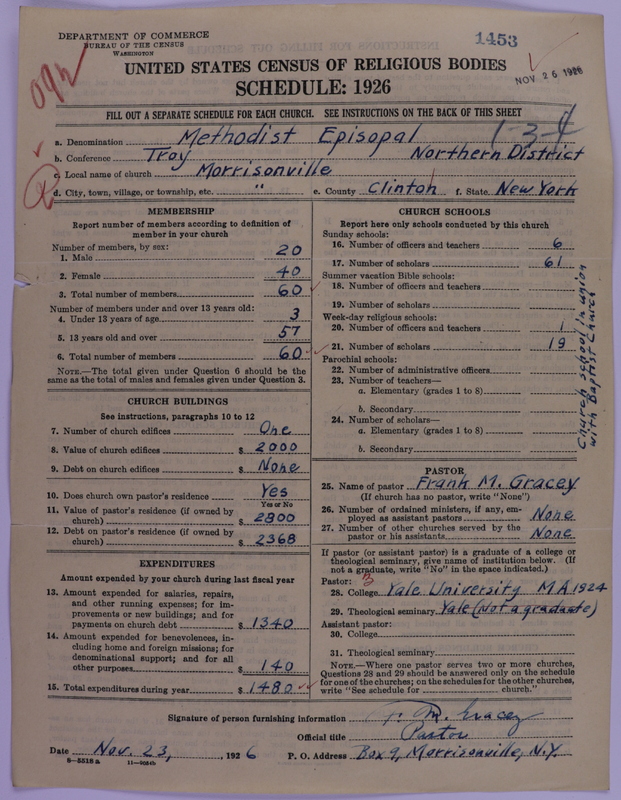 DEPARTMENT OF COMMERCE
BUREAU OF THE CENSUS
WASHINGTON
1453
NOV 26 1926
UNITED STATES CENSUS OF RELIGIOUS BODIES
SCHEDULE: 1926
FILL OUT A SEPARATE SCHEDULE FOR EACH CHURCH. SEE INSTRUCTIONS ON THE BACK OF THIS SHEET
1-3-4
a. Denomination Methodist Episopal
b. Conference Troy Northern District
c. Local name of church Morrisonville
d. City, town, village, or township, etc. " e. County Clinton f. State New York
MEMBERSHIP
Report number of members according to definition of
member in your church
Number of members, by sex:
1. Male 20
2. Female 40
3. Total number of members 60
Number of members under and over 13 years old:
4. Under 13 years of age 3
5. 13 years old and over 57
6. Total number of members 60
NOTE.—The total given under Question 6 should be
same as the total of males and females given under Question 3.
CHURCH BUILDINGS
See instructions, paragraphs 10 to 12
7. Number of church edifices One
8. Value of church edifices $ 2000
9. Debt on church edifices $ None
10. Does church own pastor's residence Yes
Yes or No
11. Value of pastor's residence (if owned by
church) $ 2800
12. Debt on pastor's residence (if owned by
church) $ 2368
EXPENDITURES
Amount expended by your church during last fiscal year
13. Amount expended for salaries, repairs,
and other running expenses; for im-
provements or new buildings; and for
payments on church debt $ 1340
14. Amount expended for benevolences, in-
cluding home and foreign missions; for
denominational support; and for all
other purposes $ 140
15. Total expenditures during year $ 1480
CHURCH SCHOOLS
Report here only schools conducted by this church
Sunday schools:
16. Number of officers and teachers 6
17. Number of scholars 61
Summer vacation Bible schools:
18. Number of officers and teachers
19. Number of scholars
Week-day religious schools:
20. Number of officers and teachers 1
21. Number of scholars 19
Parochial schools:
22. Number of administrative officers
23. Number of teachers—
a. Elementary (grades 1 to 8)
b. Secondary
24. Number of scholars—
a. Elementary (grades 1 to 8)
b. Secondary
Church school in union
with Baptist Church
PASTOR
25. Name of pastor Frank M. Gracey
(If church has no pastor, write "None")
26. Number of ordained ministers, if any, em-
ployed as assistant pastors None
27. Number of other churches served by the
pastor or his assistants None
If pastor (or assistant pastor) is a graduate of a college or
theological seminary, give name of institution below. (If
not a graduate, write "No" in the space indicated.)
Pastor: 3
28. College Yale University MA 1924
29. Theological seminary Yale (Not a graduate)
Assistant pastor:
30. College
31. Theological seminary
NOTE.—Where one pastor serves two or more churches,
Questions 28 and 29 should be answered only on the schedule
for one of the churches; on the schedules for the other churches,
write "See schedule for church."
Signature of person furnishing information F. M. Gracey
Official title Pastor
Date Nov. 23, , 1926 P. O. Address Box 9, Morrisonville, N.Y.
8-5518 a